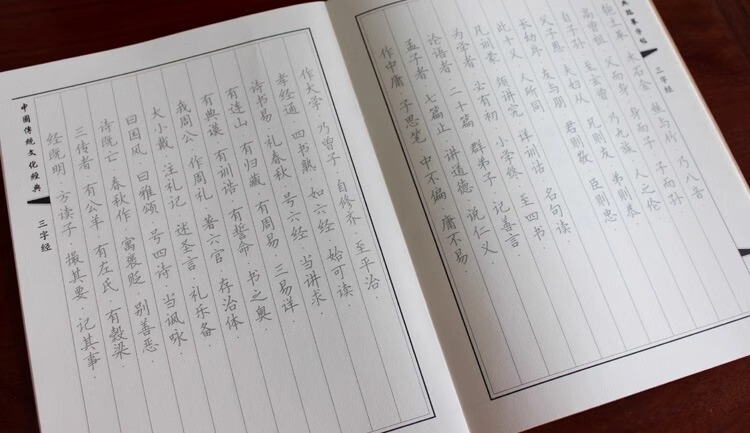 典临摹字帖
三字经
木石金·丝与竹·乃八音·
高曾祖·父而身·身而子·子而孙·
自子孙·至玄曾·乃九族·人之伦·
父子恩·夫妇从·兄则友·弟则恭·
长幼序·友与朋·君则敬·臣则忠·
此十义·人所同·
凡训蒙·须讲究·详训诂·名句读·
为学者·必有初·小学终·至四书·
论语者·二十篇·群弟子·记善言·
孟子者·七篇止·讲道德·说仁义·
作中庸·子思笔·中不偏·庸不易·
作大学·乃曾子·自修齐·至平治·
孝经通·四书熟·如六经·始可读·
诗书易·礼春秋·号六经·当讲求·
有连山·有归藏·有周易·三易详·
有典谟·有训诰·有誓命·书之奥·
我周公·作周礼·著六官·存治体·
大小戴·注礼记·述圣言·礼乐备·
曰国风·曰雅颂·号四诗·当讽咏·
诗既亡·春秋作·寓褒贬·别善恶·
三传者·有公羊·有左氏·有穀梁·
经既明·方读子·撮其要·记其事·
中国传统文化经典
三字经